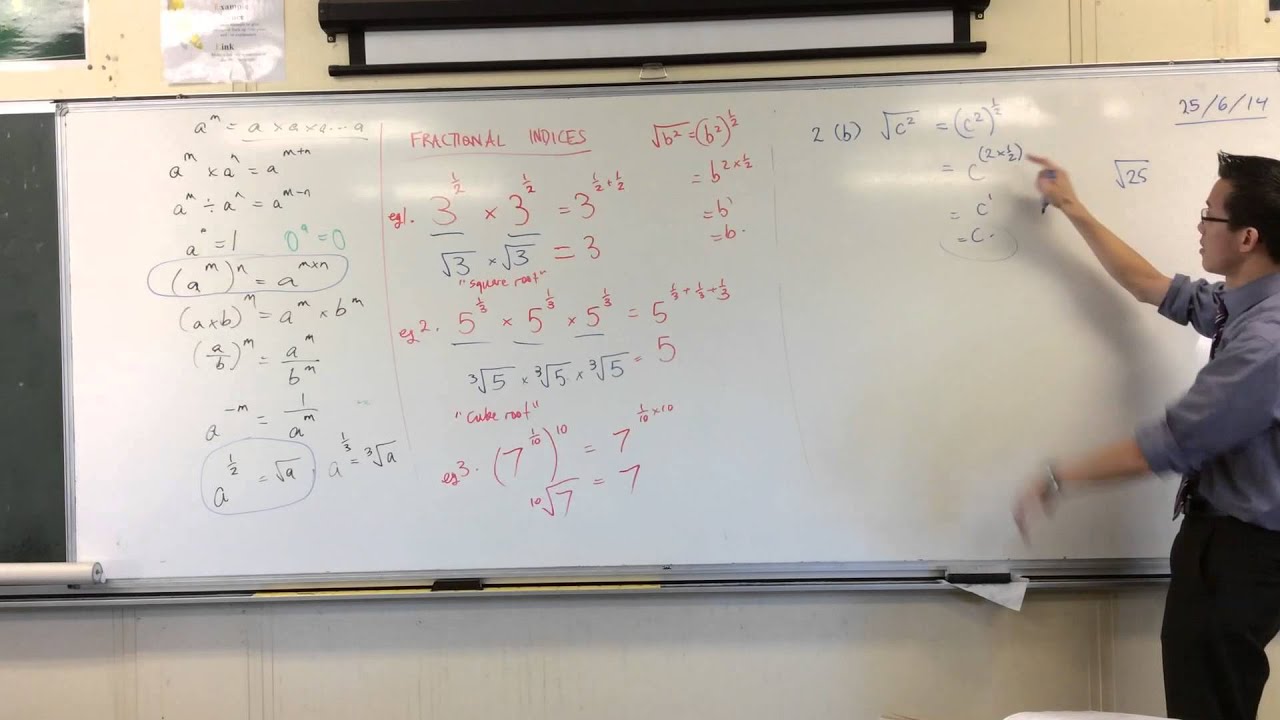 Example
Link
a^m = a × a × a ... a
a^m × a^n = a^(m+n)
a^m ÷ a^n = a^(m-n)
a^0 = 1 0^a = 0
(a^m)^n = a^(m×n)
(a×b)^m = a^m × b^m
(a/b)^m = a^m/b^m
a^(-m) = 1/a^m
a^(1/2) = √a, a^(1/3) = ³√a
FRACTIONAL INDICES
eg1. 3^(1/2) × 3^(1/2) = 3^(1/2+1/2)
√3 × √3 = 3
"square root"
eg2. 5^(1/3) × 5^(1/3) × 5^(1/3) = 5^(1/3+1/3+1/3)
³√5 × ³√5 × ³√5 = 5
"cube root"
eg3. (7^(1/10))^10 = 7^(1/10×10)
¹⁰√7 = 7
√b² = (b²)^(1/2)
= b^(2×1/2)
= b¹
= b.
2 (b) √c² = (c²)^(1/2)
= c^(2×1/2)
= c¹
= c.
25/6/14
√25